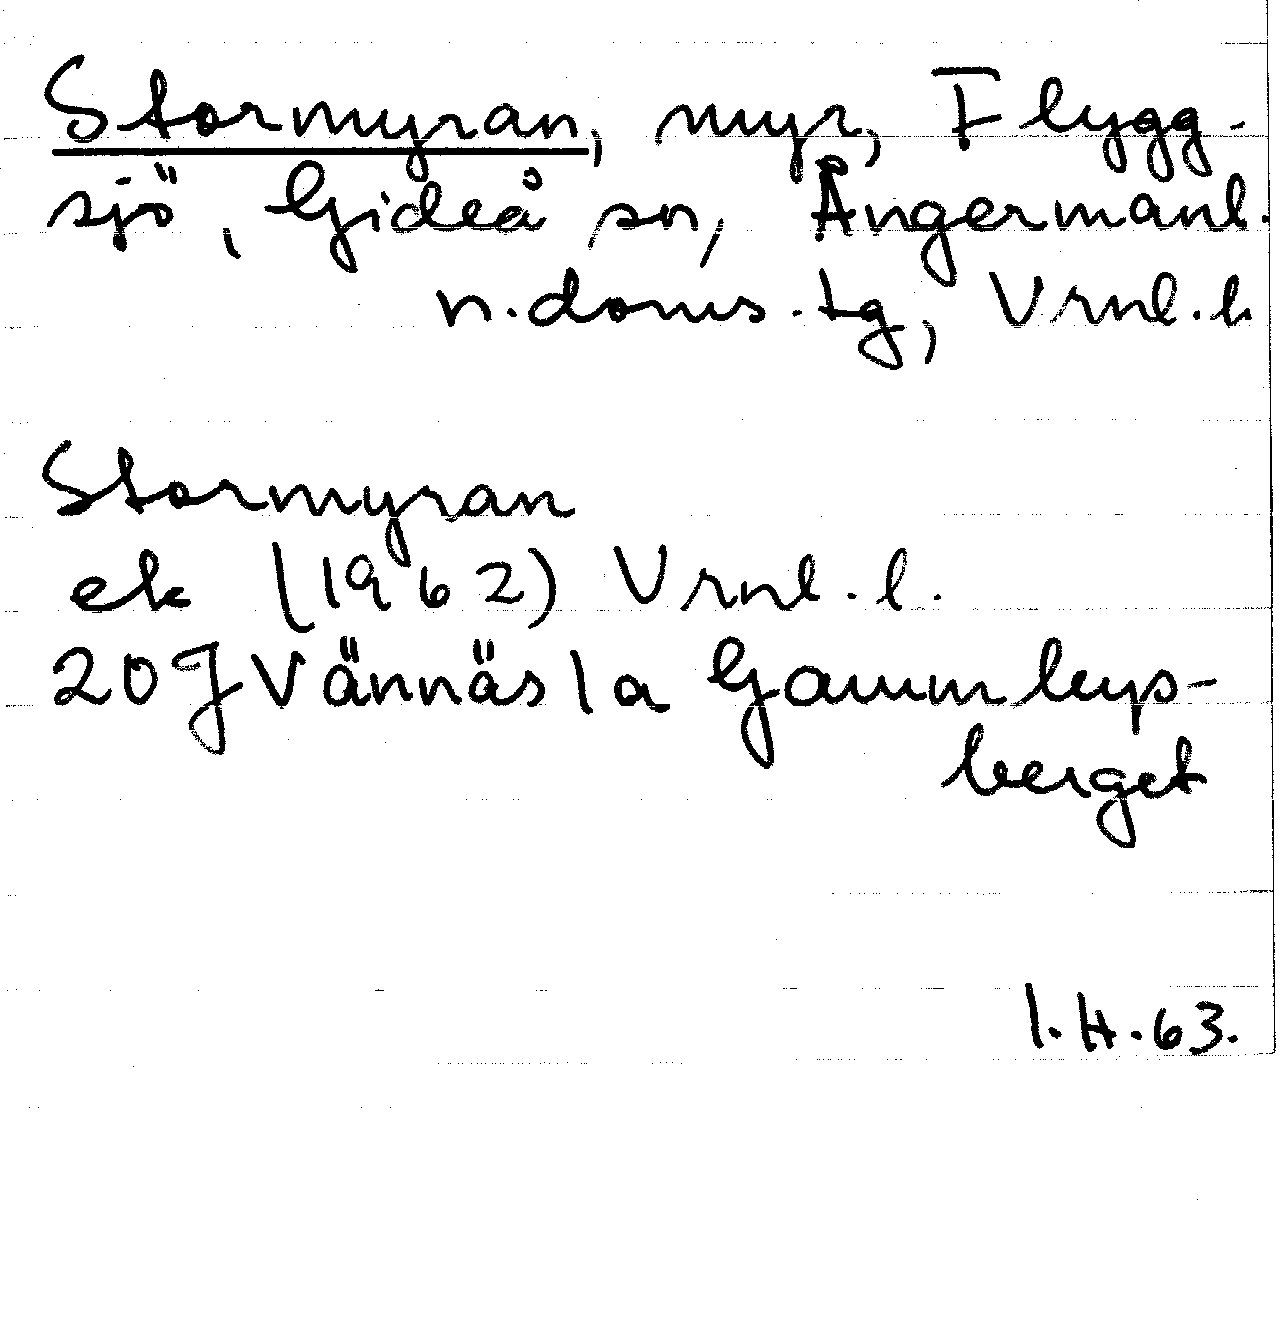 Stormyran, myr, Flygg-
sjö, Gideå sn, Ångermanl.
n. doms. tg, Vrnl. l.
Stormyran
ek (1962) Vrnl. l.
20 J Vännäs 1 a Gammleys-
berget
I. H. 63.